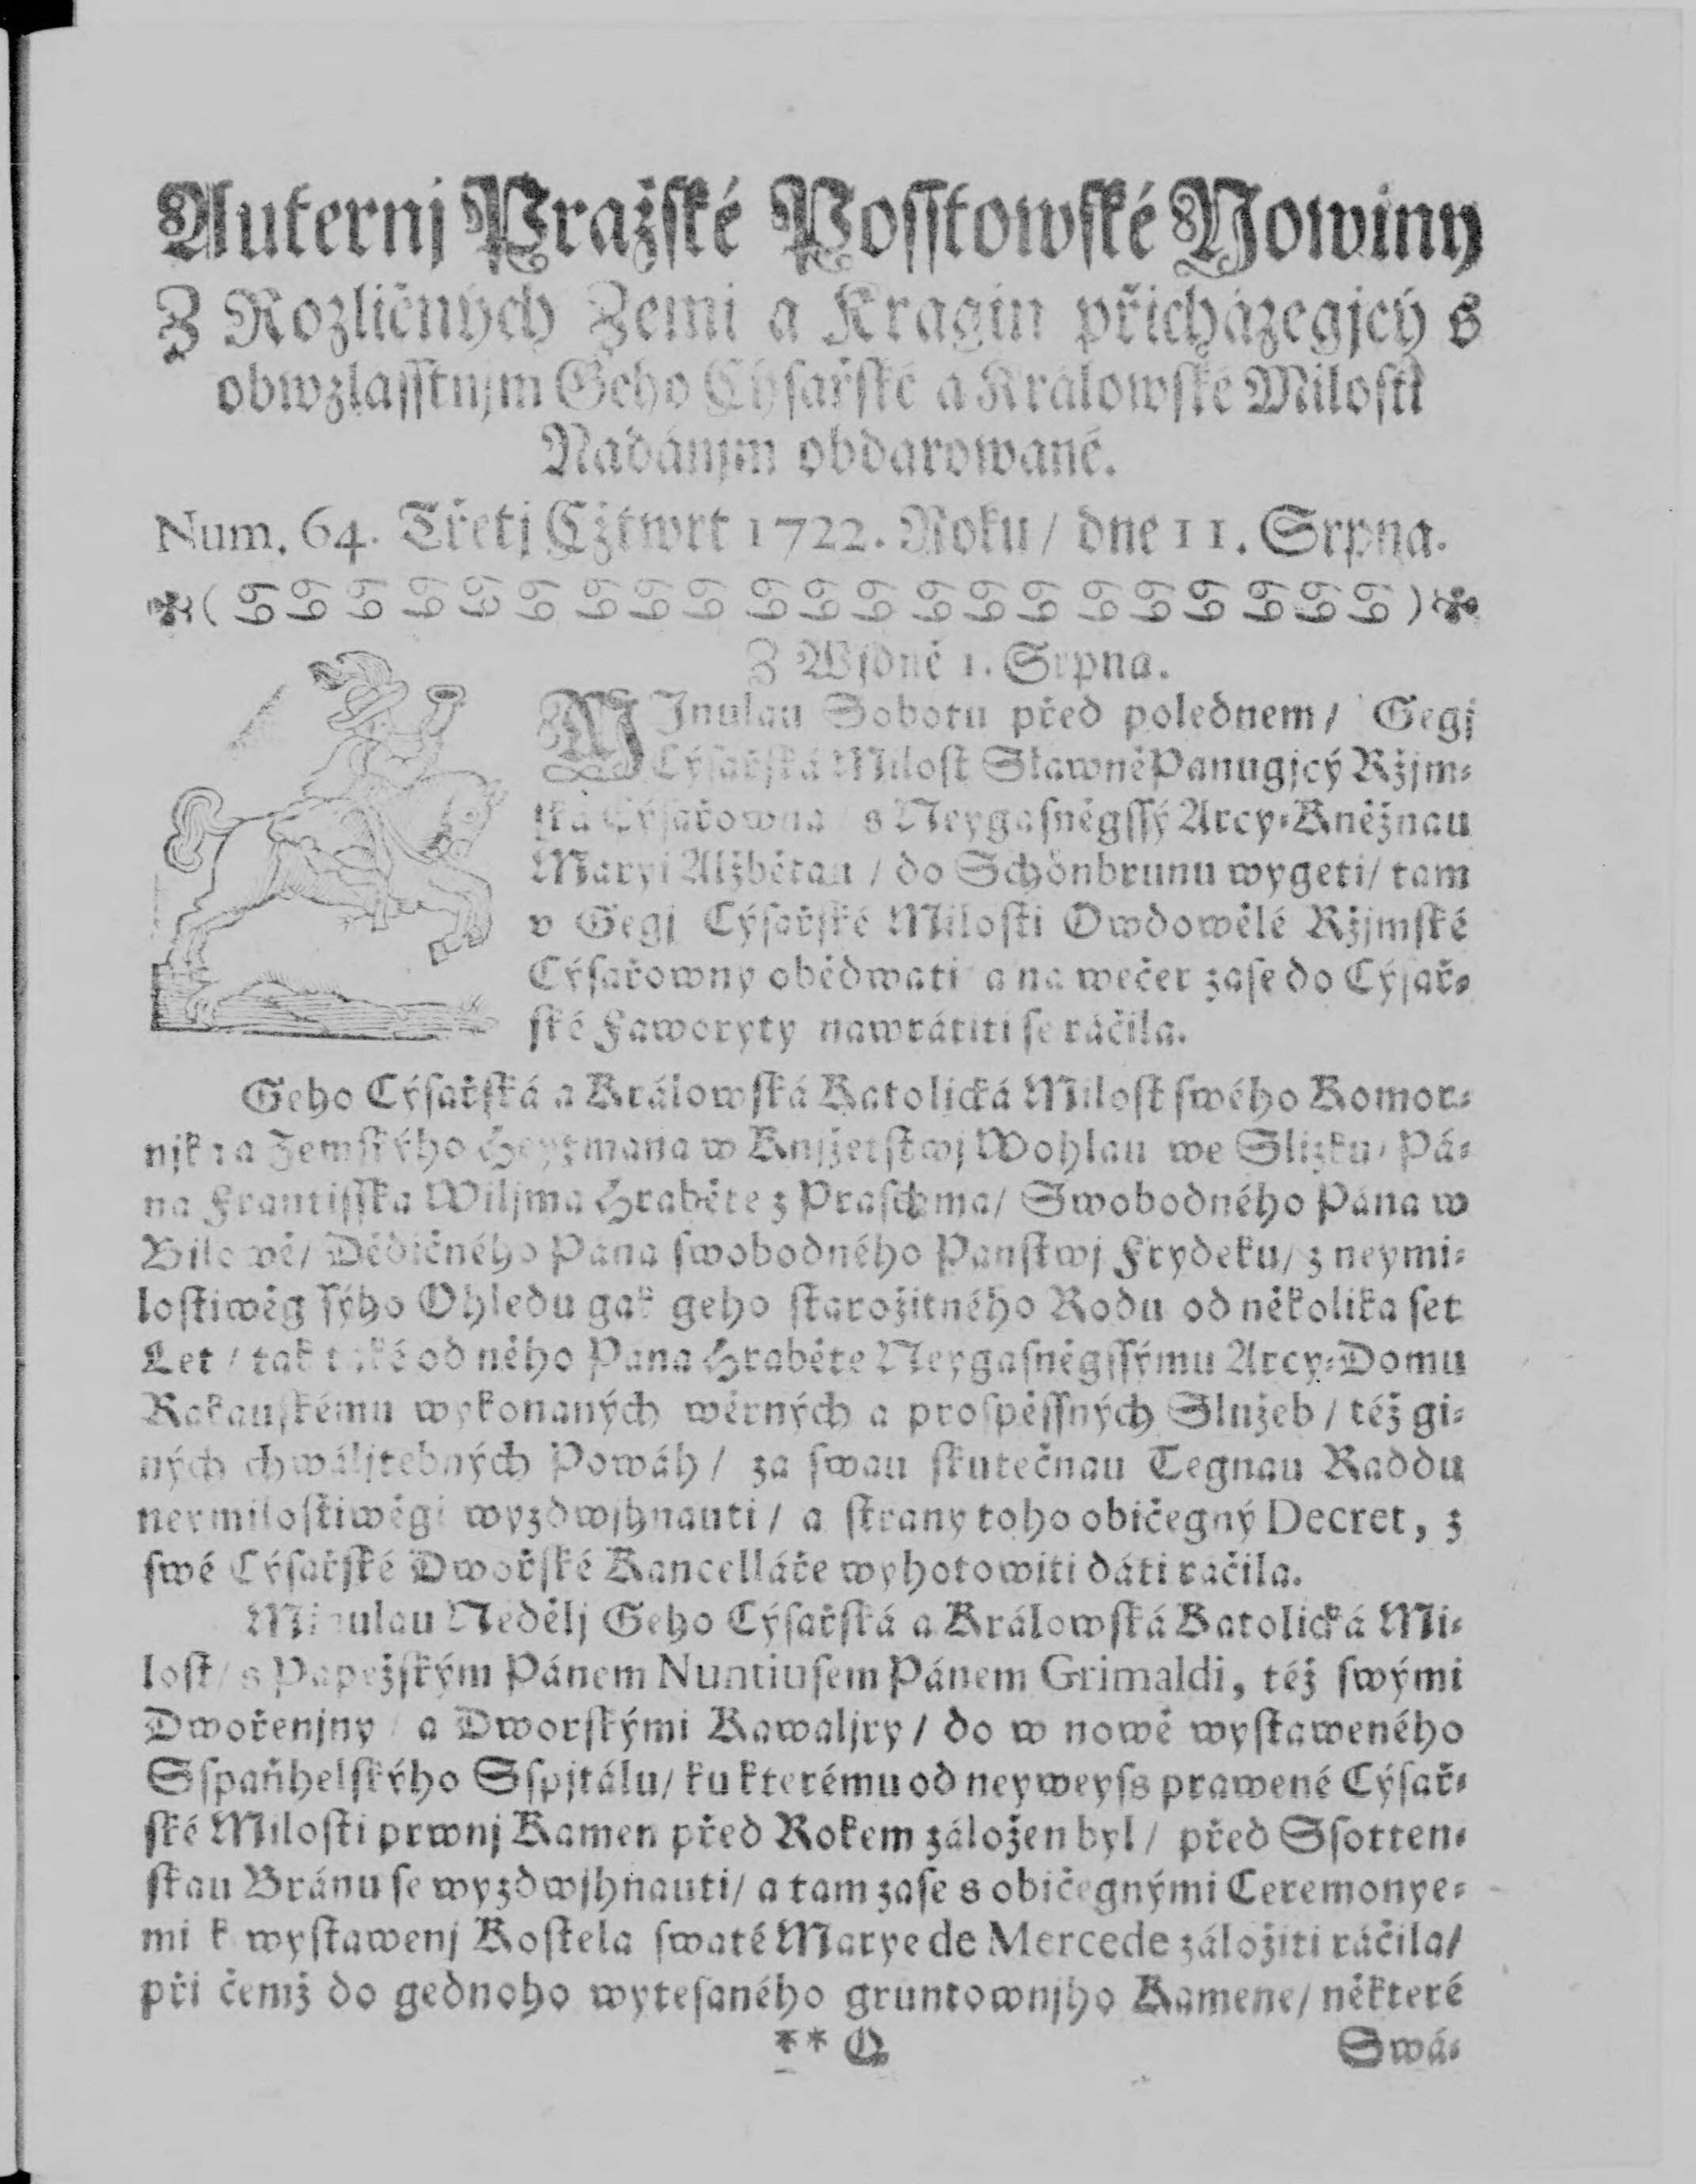 Auternj Pražſké Poſſtowſké Nowiny
Z Rozličných Zemi a Kragin přicházegjcý s
obwzlaſſtnjm Geho Cýſařſké a Králowſké Miloſti
Nadánjm obdarowané.
Num. 64. Třetj Cžtwrt 1722. Roku / dne 11. Srpna.
Z Wjdně 1. Srpna.
MJnulau Sobotu před polednem / Gegj
Cýſařſká Miloſt Slawně Panugjcý Ržjm⸗
ſká Cýſařowna / s Neygaſněgſſý Arcy⸗Kněžnau
Maryi Alžbětau / do Schönbrunu wygeti / tam
v Gegj Cýſařſké Miloſti Owdowělé Ržjmſké
Cýſařowny obědwati a na wečer zaſe do Cýſař⸗
ſké Faworyty nawrátiti ſe ráčila.
Geho Cýſařſká a Králowſká Katolická Miloſt ſwého Komor⸗
njka a Zemſkýho Heytmana w Knjžetſtwj Wohlau we Slizku / Pá⸗
na Frantiſſka Wiljma Hraběte z Praſchma / Swobodného Pána w
Bilowě / Dědičného Pána ſwobodného Panſtwj Frydeku / z neymi⸗
loſtiwěgſſýho Ohledu gak geho ſtarožitného Rodu od několika ſet
Let / tak také od něho Pana Hraběte Neygaſněgſſýmu Arcy⸗Domu
Rakauſkému wykonaných wěrných a proſpěſſných Služeb / též gi⸗
ných chwáljtebných Powáh / za ſwau ſkutečnau Tegnau Raddu
neymiloſtiwěgi wyzdwjhnauti / a ſtrany toho običegný Decret, z
ſwé Cýſařſké Dwořſké Kancelláře wyhotowiti dáti ráčila.
Minulau Nedělj Geho Cýſařſká a Králowſká Katolická Mi⸗
loſt / s Papežſkým Pánem Nuntiuſem Pánem Grimaldi, též ſwými
Dwořenjny / a Dworſkými Kawaljry / do w nowě wyſtaweného
Sſpaňhelſkýho Sſpjtálu / ku kterému od neyweyſs prawené Cýſař⸗
ſké Miloſti prwnj Kamen před Rokem záložen byl / před Sſotten⸗
ſkau Bránu ſe wyzdwjhnauti / a tam zaſe s običegnými Ceremonye⸗
mi k wyſtawenj Koſtela ſwaté Marye de Mercede záložiti ráčila /
při čemž do gednoho wyteſaného gruntownjho Kamene / některé
** Q
Swá⸗